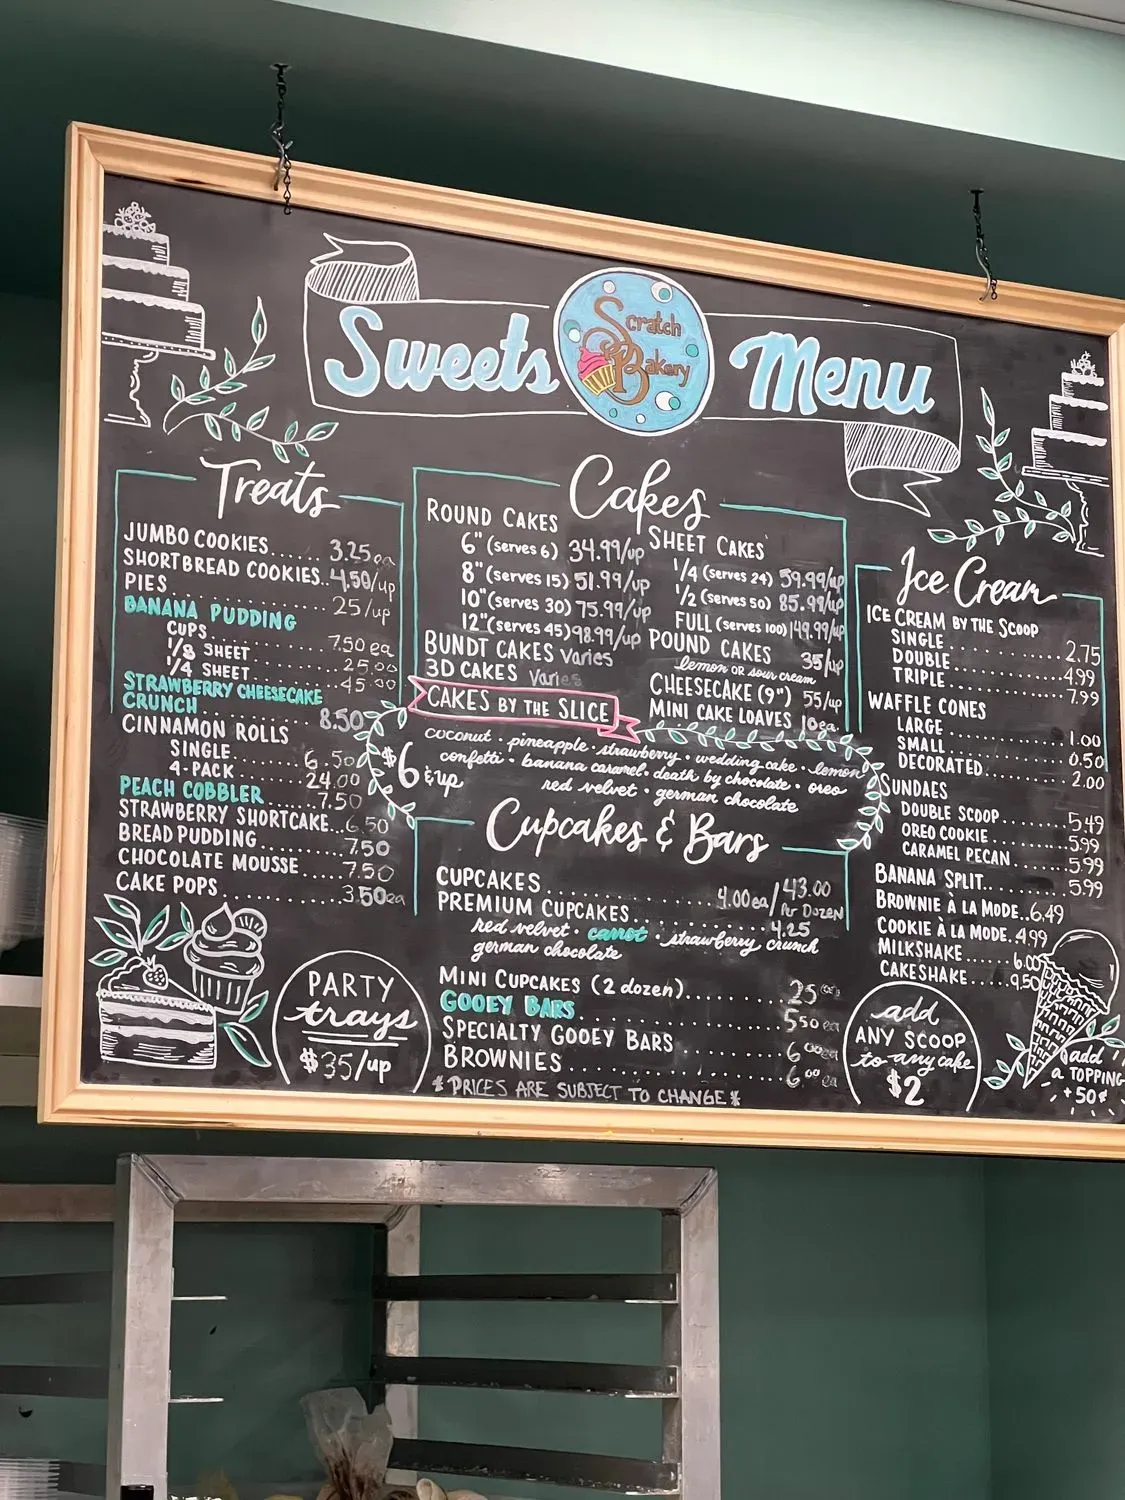 Sweets Scratch Bakery Menu
Treats
JUMBO COOKIES...... 3.25ea
SHORTBREAD COOKIES.. 4.50/up
PIES ............ 25/up
BANANA PUDDING
CUPS............ 7.50 ea
1/8 SHEET.......... 25.00
1/4 SHEET.......... 45.00
STRAWBERRY CHEESECAKE
CRUNCH............ 8.50
CINNAMON ROLLS
SINGLE............ 6.50
4-PACK.......... 24.00
PEACH COBBLER...... 7.50
STRAWBERRY SHORTCAKE... 6.50
BREAD PUDDING........ 7.50
CHOCOLATE MOUSSE..... 7.50
CAKE POPS............ 3.50ea
PARTY
trays
$35/up
Cakes
ROUND CAKES
6" (serves 6) 34.99/up
8" (serves 15) 51.99/up
10" (serves 30) 75.99/up
12" (serves 45) 98.99/up
BUNDT CAKES varies
3D CAKES Varies
SHEET CAKES
1/4 (serves 24) 59.99/up
1/2 (serves 50) 85.99/up
FULL (serves 100) 149.99/up
POUND CAKES 35/up
lemon OR sour cream
CHEESECAKE (9") 55/up
MINI CAKE LOAVES 10ea.
CAKES BY THE SLICE
$6 & up
coconut · pineapple · strawberry · wedding cake · lemon
confetti · banana caramel · death by chocolate · oreo
red velvet · german chocolate
Cupcakes & Bars
CUPCAKES............ 4.00ea/43.00 Per DOZEN
PREMIUM CUPCAKES............ 4.25
red velvet · carrot · strawberry crunch
german chocolate
MINI CUPCAKES (2 dozen)....... 25.00
GOOEY BARS............ 5.50 ea
SPECIALTY GOOEY BARS........ 6.00ea
BROWNIES............ 6.00 ea
*PRICES ARE SUBJECT TO CHANGE*
Ice Cream
ICE CREAM BY THE SCOOP
SINGLE............ 2.75
DOUBLE............ 4.99
TRIPLE............ 7.99
WAFFLE CONES
LARGE............ 1.00
SMALL............ 0.50
DECORATED.......... 2.00
SUNDAES
DOUBLE SCOOP........ 5.49
OREO COOKIE.......... 5.99
CARAMEL PECAN...... 5.99
BANANA SPLIT........ 5.99
BROWNIE À LA MODE.. 6.49
COOKIE À LA MODE. 4.99
MILKSHAKE....... 6.00
CAKESHAKE...... 9.50
add
ANY SCOOP
to any cake
$2
add
a TOPPING
+50¢